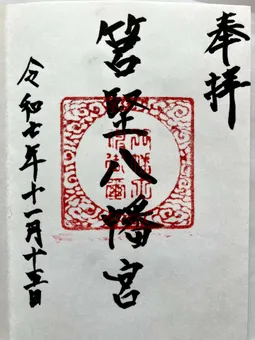 奉拝
筥堅八幡宮
令和七年十一月十三日